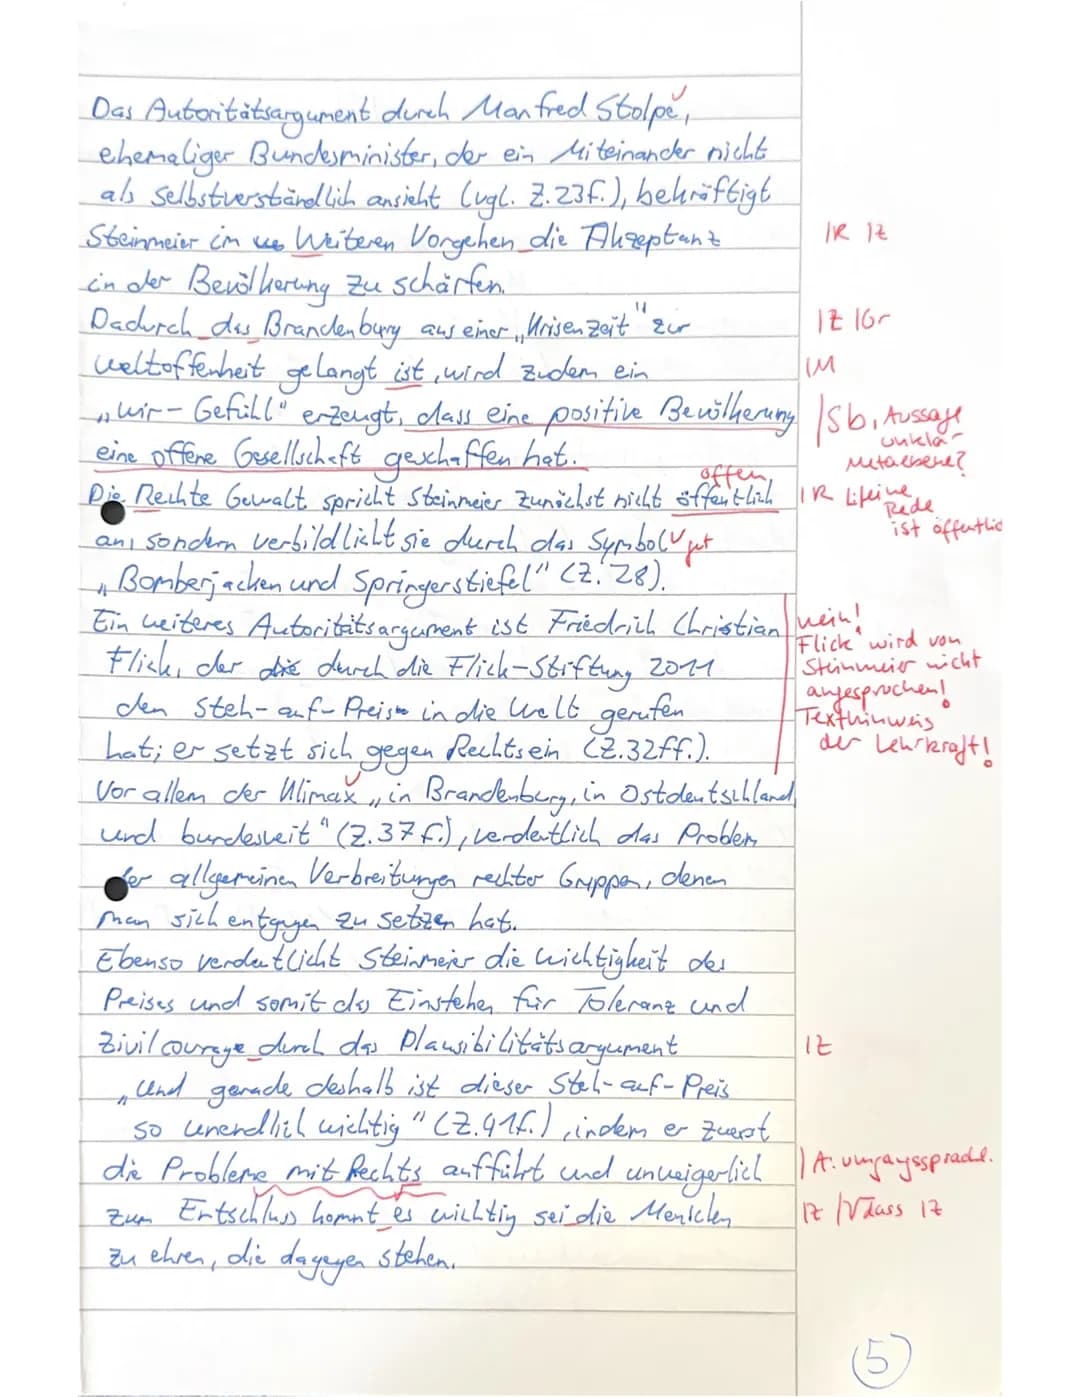 Das Autoritätsargument durch Manfred Stolpe,
ehemaliger Bundesminister, der ein Miteinander nicht
als Selbstverständlich ansieht (vgl. Z.23f.), bekräftigt
Steinmeier im Weiteren Vorgehen die Akzeptanz
IR IZ
in der Bevölkerung zu schärfen.
Dadurch das Brandenburg aus einer „Krisenzeit" zur
IZ IGr
weltoffenheit gelangt ist, wird zudem ein
IM
„wir-Gefühl" erzeugt, dass eine positive Bevölkerung
eine offene Gesellschaft geschaffen hat.
ISb, Aussage
unklar
Metaebene?
offen
Die Rechte Gewalt spricht Steinmeier zunächst nicht öffentlich
IR
eine
Rede
ist öffentlich
an, sondern verbildlicht sie durch das Symbol
gut
„Bomberjacken und Springerstiefel" (Z. 28).
Ein weiteres Autoritätsargument ist Friedrich Christian
Flick, der die durch die Flick-Stiftung 2011
den Steh-auf-Preis in die Welt gerufen
hat; er setzt sich gegen Rechts ein (Z.32ff.).
nein!
Flick wird von
Steinmeier nicht
angesprochen!
Texthinweis
der Lehrkraft!
Vor allem der Klimax „in Brandenburg, in Ostdeutschland
und bundesweit" (Z.37f.), verdeutlich das Problem
der allgemeinen Verbreitungen rechter Gruppen, denen
man sich entgegen zu setzen hat.
Ebenso verdeutlicht Steinmeier die wichtigkeit des
Preises und somit das Einstehen für Toleranz und
Zivilcourage durch das Plausibilitätsargument
IZ
„Und gerade deshalb ist dieser Steh-auf-Preis
so unendlich wichtig" (Z.41f.), indem er zuerst
die Probleme mit Rechts aufführt und unweigerlich
I A. umgangssprachl.
zum Entschluss kommt es wichtig sei die Menschen
IZ I√dass IZ
zu ehren, die dagegen stehen.
5